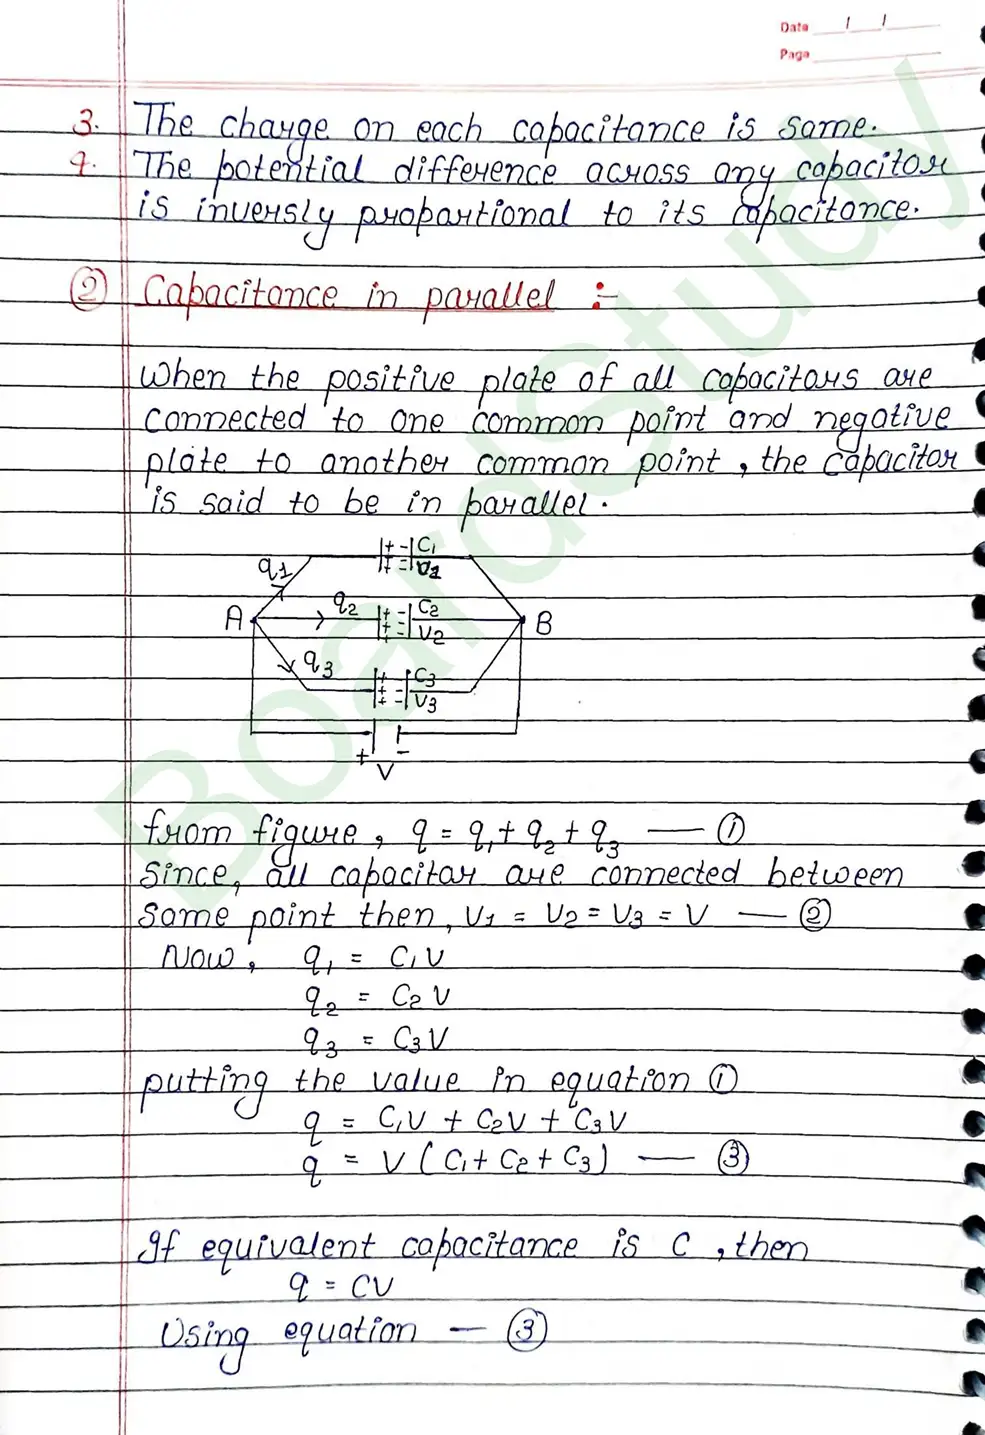 Date / /
Page
3. The charge on each capacitance is same.
4. The potential difference across any capacitor
is inversly propartional to its capacitance.
② Capacitance in parallel :-
When the positive plate of all capacitors are
connected to one common point and negative
plate to another common point, the capacitor
is said to be in parallel.
+ - C1
q1 + = V1
q2 + - C2
A B
+ - V2
q3 + - C3
+ - V3
+ -
V
from figure, q = q1 + q2 + q3 — ①
Since, all capacitor are connected between
Same point then, V1 = V2 = V3 = V — ②
Now, q1 = C1V
q2 = C2V
q3 = C3V
putting the value in equation ①
q = C1V + C2V + C3V
q = V (C1 + C2 + C3) — ③
If equivalent capacitance is C, then
q = CV
Using equation — ③
BoardStudy